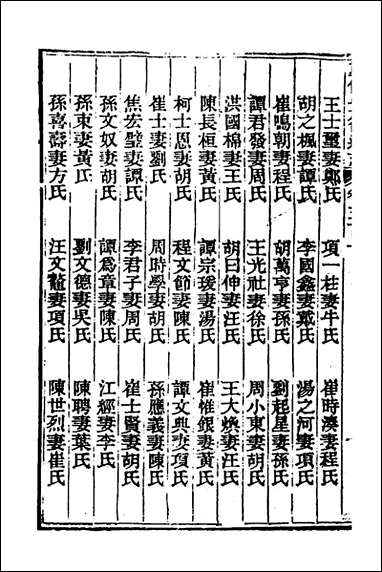 王士璽妻鄭氏　項一柱妻牛氏　崔時湊妻程氏
胡之楓妻譚氏　李國鑫妻戴氏　湯之河妻項氏
崔鳴朝妻程氏　胡萬亨妻孫氏　劉起星妻孫氏
譚君發妻周氏　王光祉妻徐氏　周小東妻胡氏
洪國棉妻王氏　胡曰伸妻汪氏　王大煥妻汪氏
陳長桓妻黃氏　譚宗瑗妻湯氏　崔惟銀妻黃氏
柯士恩妻胡氏　程文節妻陳氏　譚文興妻項氏
崔士妻劉氏　周時學妻胡氏　孫應義妻陳氏
焦宏璧妻譚氏　李君子妻周氏　崔士賢妻胡氏
孫文奴妻胡氏　譚爲章妻陳氏　江經妻李氏
孫東妻黃氏　劉文德妻吳氏　陳聘妻葉氏
孫喜壽妻方氏　汪文鼇妻項氏　陳世烈妻崔氏